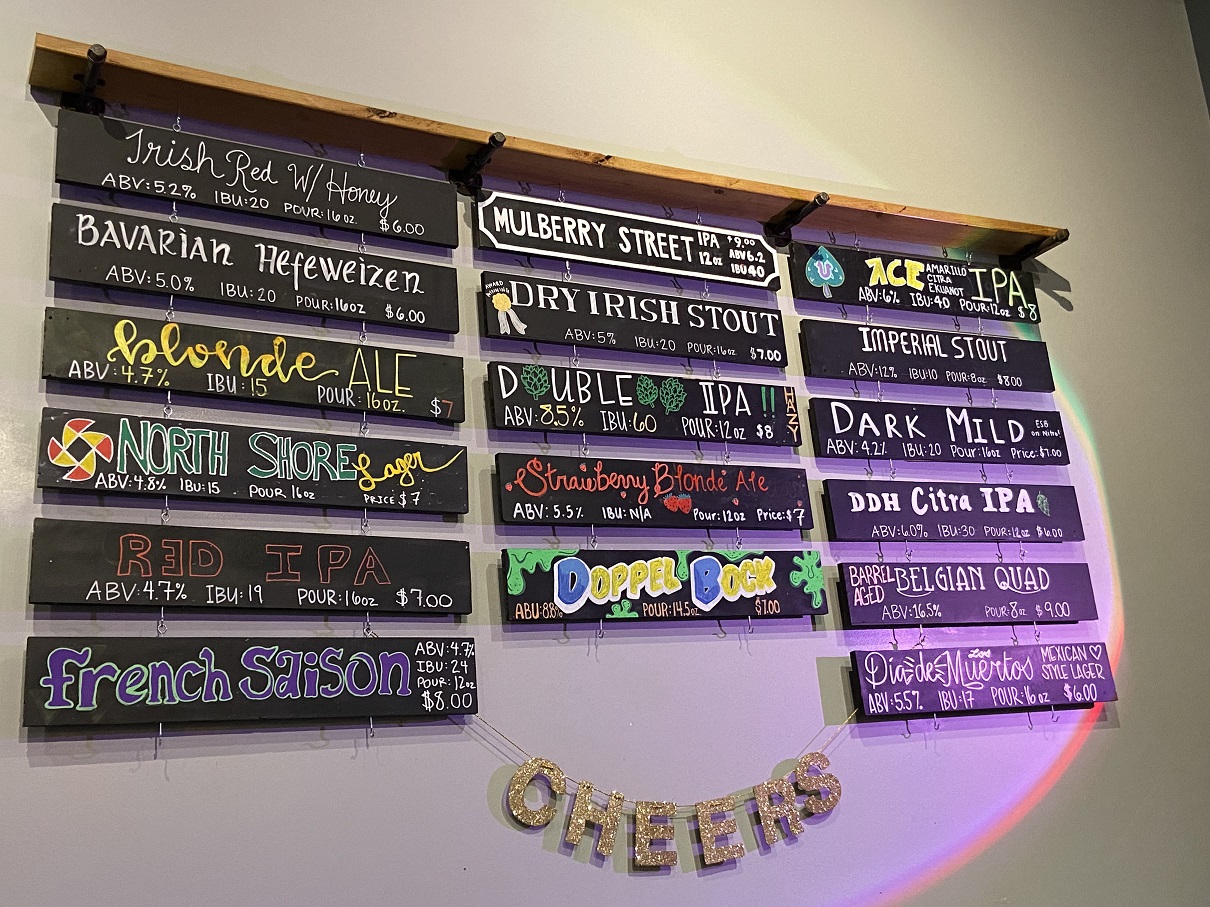 Irish Red W/ Honey
ABV: 5.2% IBU: 20 POUR: 16 oz. $6.00
BAVARiAN HefeWeizen
ABV: 5.0% IBU: 20 POUR: 16oz $6.00
blonde ALE
ABV: 4.7% IBU: 15 POUR: 16oz. $7
NORTH SHORE Lager
ABV: 4.8% IBU: 15 POUR 16oz PRICE $7
RED IPA
ABV: 4.7% IBU: 19 POUR: 16oz $7.00
french Saison
ABV: 4.7%
IBU: 24
POUR: 12oz
$8.00
MULBERRY STREET IPA 12oz
$9.00
ABV 6.2
IBU 40
AWARD WINNING
DRY IRISH STOUT
ABV: 5% IBU: 20 POUR: 16oz $7.00
DOUBLE IPA !! HAZY
ABV: 8.5% IBU: 60 POUR: 12oz $8
Strawberry Blonde Ale
ABV: 5.5% IBU: N/A Pour: 12oz Price: $7
DOPPEL BOCK
ABU: 8.8% POUR: 14.5oz $7.00
U
ACE AMARILLO CITRA EKUANOT IPA
ABV: 6% IBU: 40 POUR: 12oz $8
IMPERIAL STOUT
ABV: 12% IBU: 10 POUR: 8oz $8.00
DARK MILD ESB on Nitro!
ABV: 4.2% IBU: 20 Pour: 16oz Price: $7.00
DDH Citra IPA
ABV: 6.0% IBU: 30 POUR: 12oz $6.00
BARREL AGED BELGIAN QUAD
ABV: 16.5% POUR: 8oz $9.00
Dia de Los Muertos MEXICAN STYLE LAGER
ABV: 5.5% IBU: 17 POUR: 16oz $6.00
CHEERS